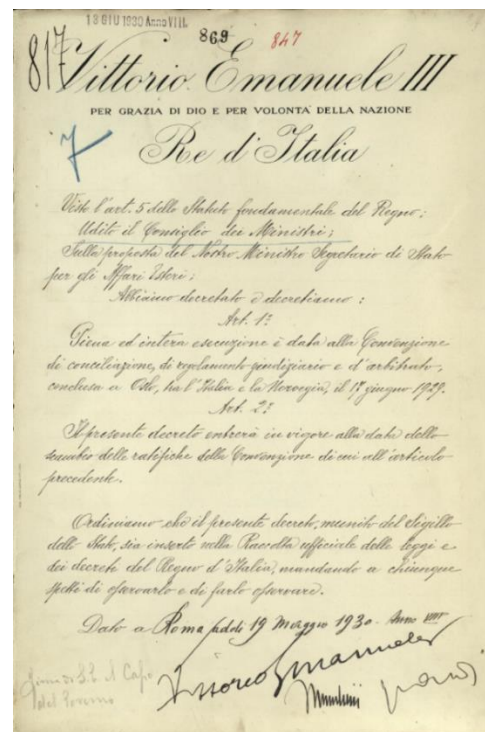 13 GIU 1930 Anno VIII
869
847
817
Vittorio Emanuele III
PER GRAZIA DI DIO E PER VOLONTÀ DELLA NAZIONE
7
Re d'Italia
Visto l'art. 5 dello Statuto fondamentale del Regno;
Udito il Consiglio dei Ministri;
Sulla proposta del Nostro Ministro Segretario di Stato
per gli Affari Esteri;
Abbiamo decretato e decretiamo:
Art. 1º
Piena ed intera esecuzione è data alla Convenzione
di conciliazione, di regolamento giudiziario e d'arbitrato,
conclusa a Oslo, tra l'Italia e la Norvegia, il 17 giugno 1929.
Art. 2º
Il presente decreto entrerà in vigore alla data dello
scambio delle ratifiche della Convenzione di cui all'articolo
precedente.
Ordiniamo che il presente decreto, munito del Sigillo
dello Stato, sia inserto nella Raccolta ufficiale delle leggi e
dei decreti del Regno d'Italia, mandando a chiunque
spetti di osservarlo e di farlo osservare.
Dato a Roma addì 19 Maggio 1930 - Anno VIII
Vittorio Emanuele
Mussolini
Grandi
Firma di S.E. il Capo
del Governo